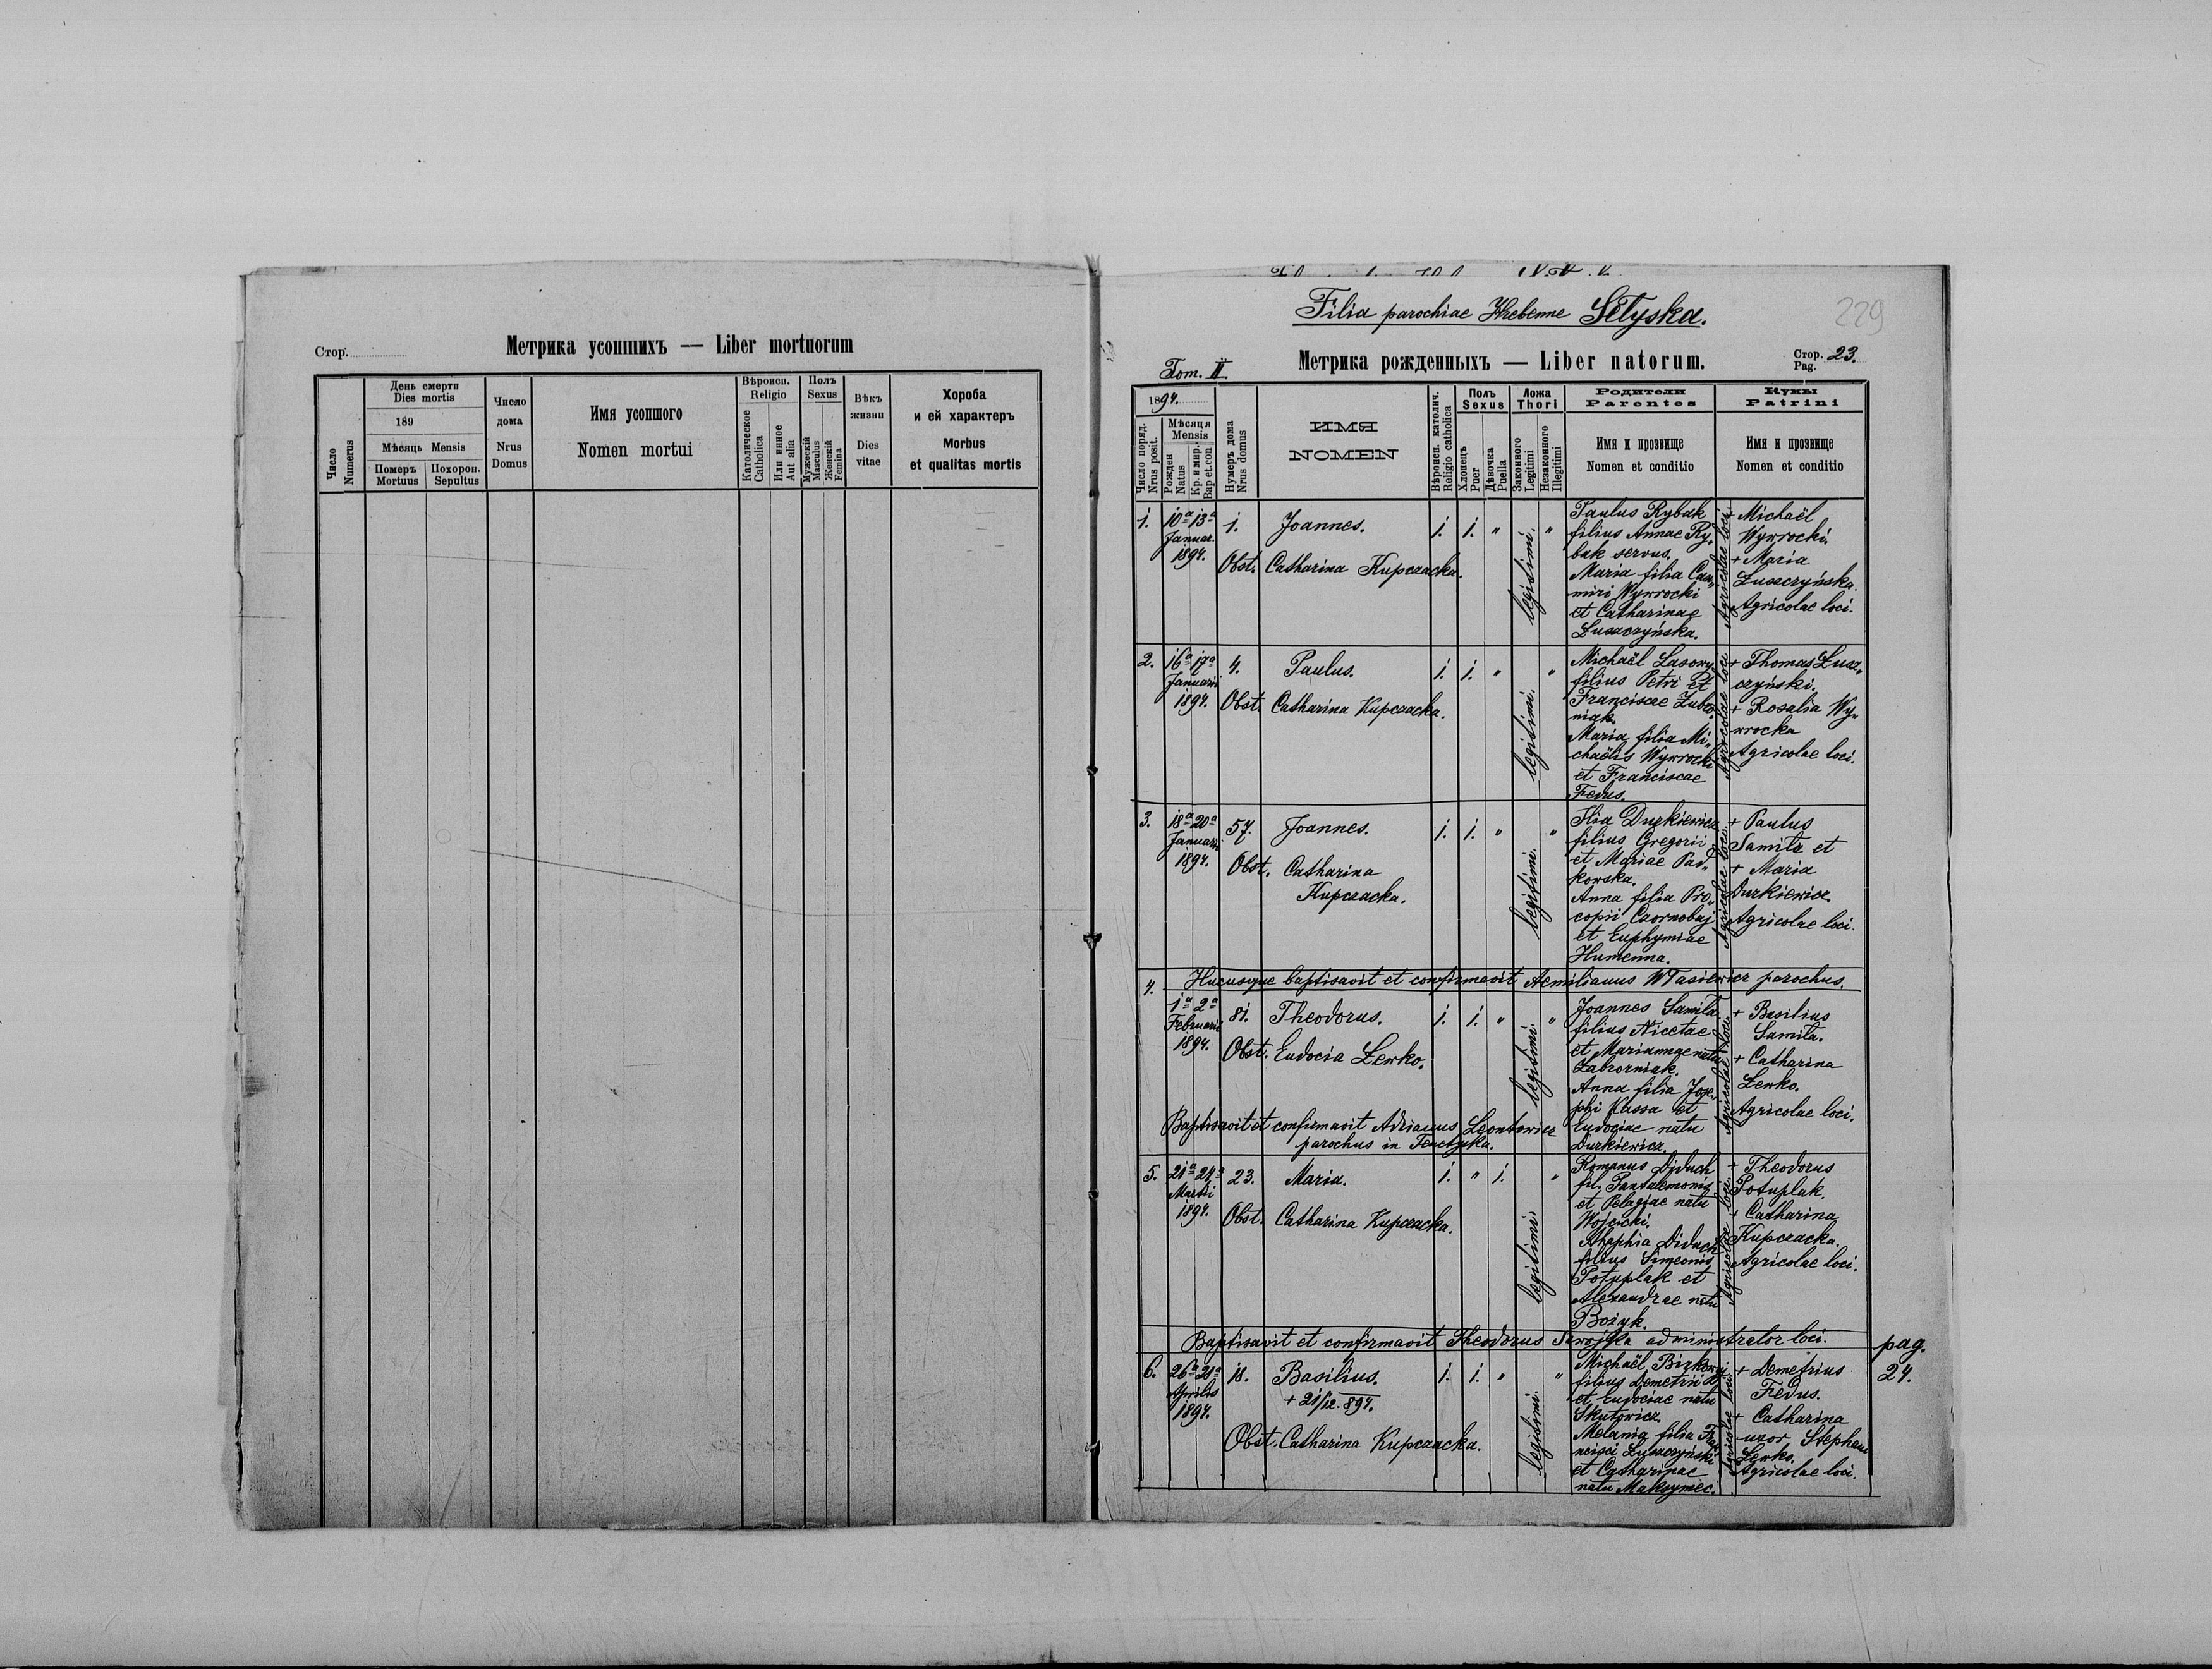 Стор.
Метрика усопшихъ — Liber mortuorum
Число
Numerus
День смерти
Dies mortis
189
Мѣсяць Mensis
Померъ
Mortuus
Похорон.
Sepultus
Число
дома
Nrus
Domus
Имя усопшого
Nomen mortui
Вѣроисп.
Religio
Католическое
Catholica
Или инное
Aut alia
Полъ
Sexus
Мужескій
Masculus
Женскій
Femina
Вѣкъ
жизни
Dies
vitae
Хороба
и ей характеръ
Morbus
et qualitas mortis
Filia parochiae Hrebenne Sełyska.
229
Tom. II.
Метрика рожденныхъ — Liber natorum.
Стор.
Pag. 23.
1894.
Число поряд.
Nrus posit.
Мѣсяця
Mensis
Рожден
Natus
Кр. и мир.
Bap et.con
Нумеръ дома
Nrus domus
ИМЯ
NOMEN
Вѣроисп. католич.
Religio catholica
Полъ
Sexus
Хлопець
Puer
Дѣвочка
Puella
Ложа
Thori
Законного
Legitimi
Незаконного
Illegitimi
Родители
Parentes
Имя и прозвище
Nomen et conditio
Кумы
Patrini
Имя и прозвище
Nomen et conditio
1. 10a 13a 1. Joannes. 1. 1. " "
Januar.
1894.
Obst. Catharina Kupczacka.
legitimi.
Paulus Rybak
filius Annae Ry„
bak servus.
Maria filia Caz„
miri Wywrocki
et Catharinae
Łuszczyńska.
Agricolae loci
+ Michaël
Wywrocki.
+ Maria
Łuszczyńska.
Agricolae loci.
2. 16a 17a 4. Paulus. 1. 1. " "
Januarii
1894.
Obst. Catharina Kupczacka.
legitimi.
Michaël Lasowy
filius Petri et
Franciscae Zubro„
niak.
Maria filia Mi„
chaëlis Wywrocki
et Franciscae
Fedus.
Agricolae loci
+ Thomas Łusz„
czyński.
+ Rosalia Wy„
wrocka
Agricolae loci.
3. 18a 20a 57. Joannes. 1. 1. " "
Januarii
1894.
Obst. Catharina
Kupczacka.
legitimi.
Ilia Durkiewicz
filius Gregorii
et Mariae Paw„
kowska.
Anna filia Pro„
copii Czornobaj
et Euphymiae
Humenna.
Agricolae loci.
+ Paulus
Samiła et
+ Maria
Durkiewicz.
Agricolae loci.
Hucusque baptisavit et confirmavit Aemilianus Wasilewicz parochus.
4. 1a 2a 81. Theodorus. 1. 1. " "
Februarii
1894.
Obst. Eudocia Lewko.
legitimi.
Joannes Samiła
filius Nicetae
et Mariannae natu
Zabrorniak.
Anna filia Jose„
phi Klissa et
Eudociae natu
Durkiewicz.
Agricolae loci.
+ Basilius
Samiła.
+ Catharina
Lewko.
Agricolae loci.
Baptisavit et confirmavit Adrianus Leontowicz
parochus in
5. 21a 24a 23. Maria. 1. " 1. "
Martii
1894.
Obst. Catharina Kupczacka.
legitimi.
Romanus Diduch
fil. Pantalemonis
et Pelagiae natu
Wojcicki.
Ahaphia Diduch
filius Simeonis
Potuplak et
Alexandrae natu
Bożyk.
Agricolae loci.
+ Theodorus
Potuplak.
+ Catharina
Kupczacka.
Agricolae loci.
Baptisavit et confirmavit Theodorus Sawojka administrator loci.
pag.
24.
6. 26a 28a 18. Basilius. 1. 1. " "
Aprilis
1894.
+ 21/12. 894.
Obst. Catharina Kupczacka.
legitimi.
Michaël Birkowy
filius Demetrii
et Eudociae natu
Skutowicz.
Melania filia Fra„
ncisci Łuszczyński
et Catharinae
natu Maksymec.
Agricolae loci
+ Demetrius
Fedus.
+ Catharina
uxor Stephani
Lewko.
Agricolae loci.